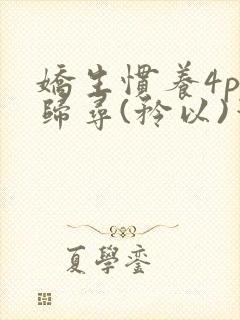 嬌生慣養4p
歸尋(矜以)
夏學鑾